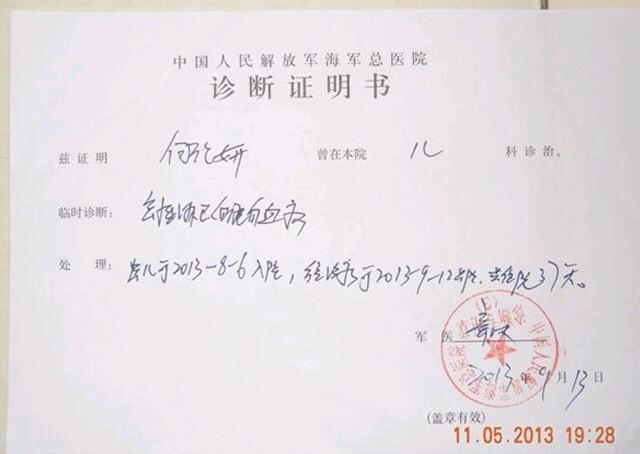 中国人民解放军海军总医院
诊断证明书
兹证明 何 妍 曾在本院 儿 科诊治。
临时诊断： 急性淋巴细胞白血病
处 理： 患儿于2013-8-6入院，经治疗于2013-9-12出院，共住院37天。
军医
2013年9月13日
(盖章有效)
11.05.2013 19:28